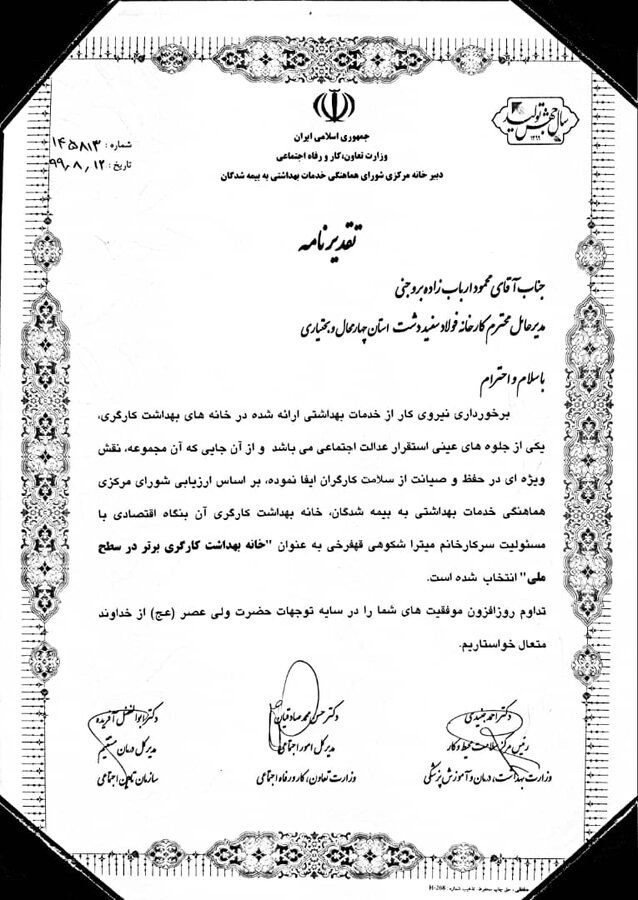 جمهوری اسلامی ایران
وزارت تعاون، کار و رفاه اجتماعی
دبیر خانه مرکزی شورای هماهنگی خدمات بهداشتی به بیمه شدگان
سال جهش تولید
۱۳۹۹
شماره : ۱۴۵۸۱۳
تاریخ : ۹۹٫۸٫۱۲
تقدیرنامه
جناب آقای محمود ارباب زاده بروجنی
مدیرعامل محترم کارخانه فولاد سفید دشت استان چهارمحال و بختیاری
با سلام و احترام
برخورداری نیروی کار از خدمات بهداشتی ارائه شده در خانه های بهداشت کارگری،
یکی از جلوه های عینی استقرار عدالت اجتماعی می باشد و از آن جایی که آن مجموعه، نقش
ویژه ای در حفظ و صیانت از سلامت کارگران ایفا نموده، بر اساس ارزیابی شورای مرکزی
هماهنگی خدمات بهداشتی به بیمه شدگان، خانه بهداشت کارگری آن بنگاه اقتصادی با
مسئولیت سرکارخانم میترا شکوهی قهفرخی به عنوان "خانه بهداشت کارگری برتر در سطح
ملی" انتخاب شده است.
تداوم روزافزون موفقیت های شما را در سایه توجهات حضرت ولی عصر (عج) از خداوند
متعال خواستاریم.
دکتر احمد جنیدی
رئیس مرکز سلامت محیط و کار
وزارت بهداشت، درمان و آموزش پزشکی
دکتر حسن محمد صادقیان
مدیر کل امور اجتماعی
وزارت تعاون، کار و رفاه اجتماعی
دکتر ابوالفضل آفریده
مدیر کل درمان مستقیم
سازمان تامین اجتماعی
حق چاپ محفوظ تذهیب شماره : H-268